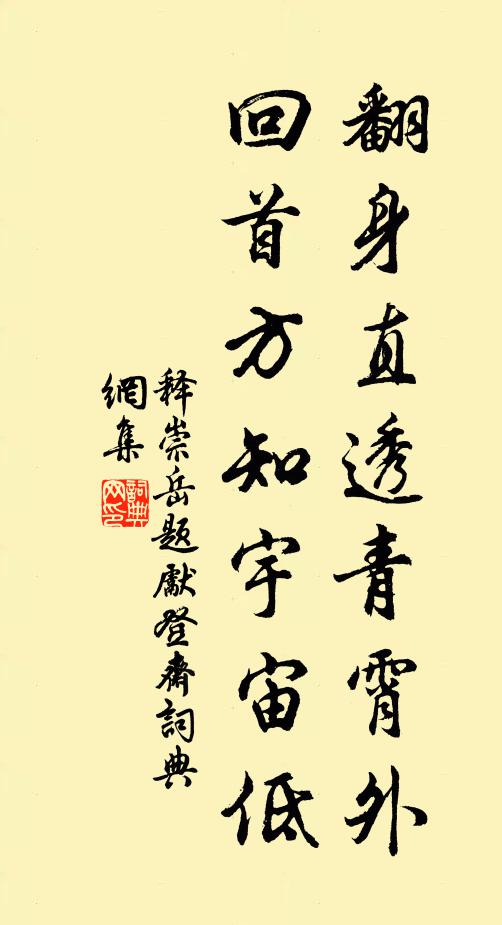 翻身直透青霄外
回首方知宇宙低
释崇岳题獻登齋詞典
網集
詞典
网印